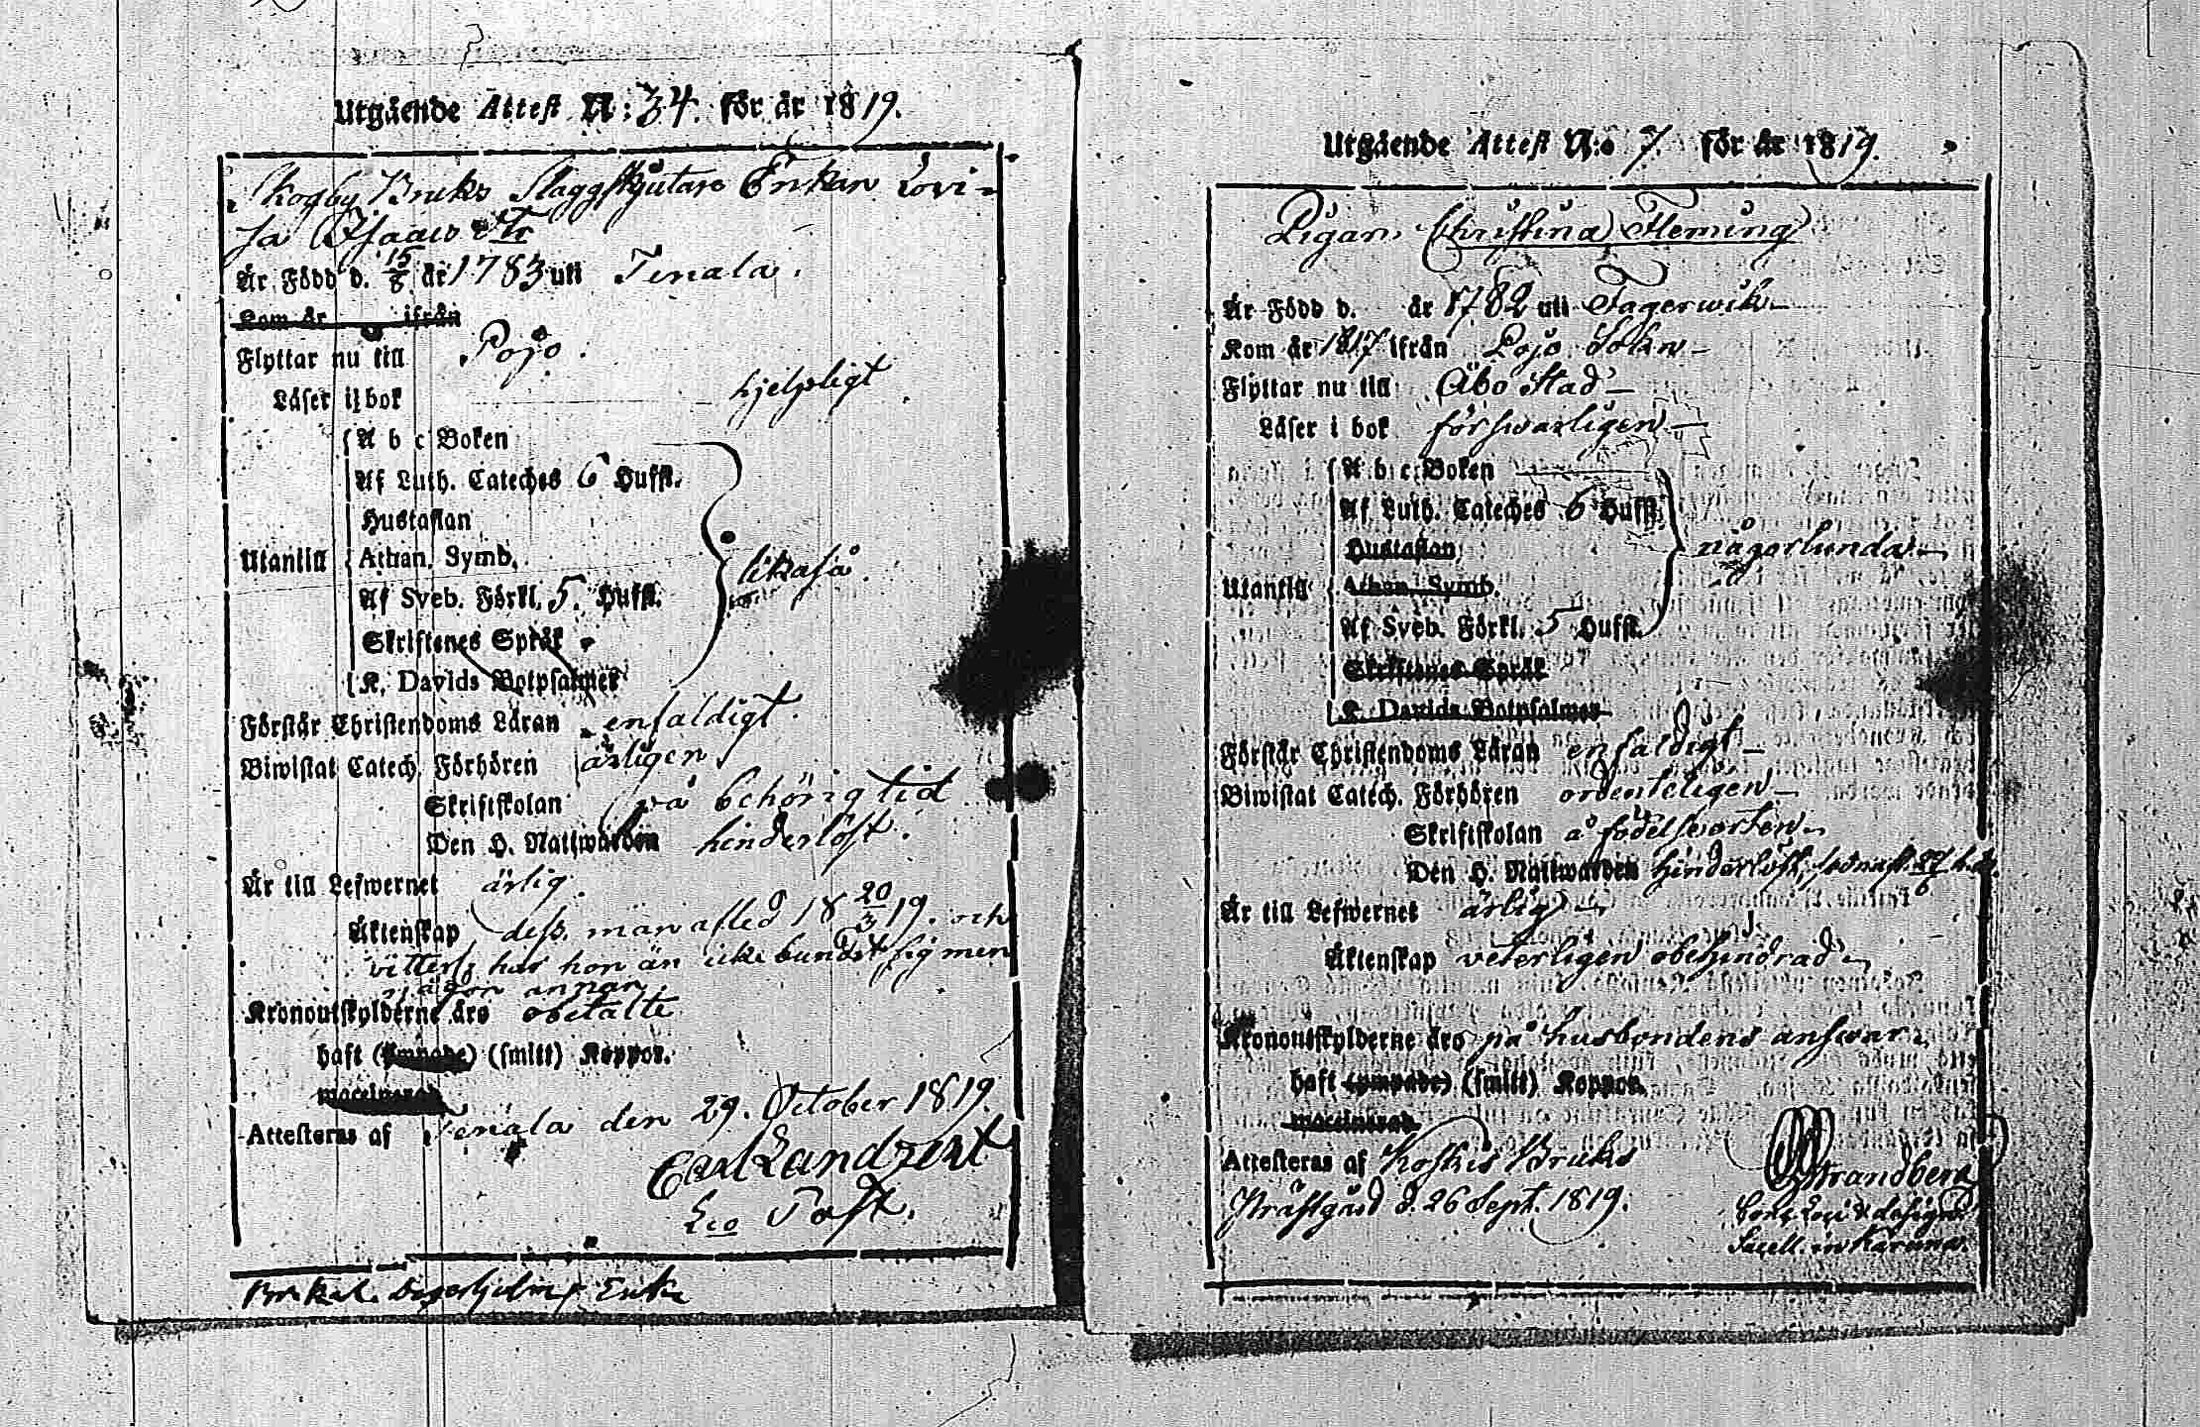 Utgående Attest N:34. för år 1819.
Kogby Bruks Slaggskjutare Enkan Lovi-
sa Isaacs dtr
Är Född d. 15/8 år 1783 uti Tenala.
Kom år ifrån
Flyttar nu till Pojo.
Läser i bok hjelpligt
A b c Boken
Af Luth. Cateches 6 Hufst.
Hustaflan
Utantill Athan. Symb. likaså.
Af Sveb. Förkl. 5. Hufst.
Skriftenes Språk
K. Davids Botpsalmer
Förstår Christendoms Läran enfaldigt.
Biwistat Catech. Förhören årligen
Skriftskolan på behörig tid
Den H. Nattwarden hinderlöst.
Är till Lefwernet ärlig.
Äktenskap dess man afled 18 20/3 19. och
vitterl. har hon än icke bundit sig men
någon annan.
Kronoutskylderne äro obetalte
haft (ympade) (smitt) Koppor.
waccinerad
Attesteras af Tenala den 29. October 1819.
Carl Landzert
Lco Past.
Enka
Utgående Attest N:o 7. för år 1819.
Pigan Christina Fleming
Är Född d. år 1782 uti Fagerwik
Kom år 1817 ifrån Pojo Sokn
Flyttar nu till Åbo Stad
Läser i bok försvarligen
A b c Boken
Af Luth. Cateches 6 Hufst.
Hustaflan någorlunda
Utantill Athan. Symb.
Af Sveb. Förkl. 5 Hufst.
Skriftenes Språk
K. Davids Botpsalmer
Förstår Christendoms Läran enfaldigt
Biwistat Catech. Förhören ordenteligen
Skriftskolan å födelseorten
Den H. Nattwarden hinderlöst, sednast 27/6
Är till Lefwernet ärlig
Äktenskap veterligen obehindrad
Kronoutskylderne äro på husbondens answar
haft (ympade) (smitt) Koppor.
waccinerad
Attesteras af Koskis Bruks
Prästgård d. 26 Sept. 1819. Strandberg
Conc. Loci & design.
Sacell. in Karuna.